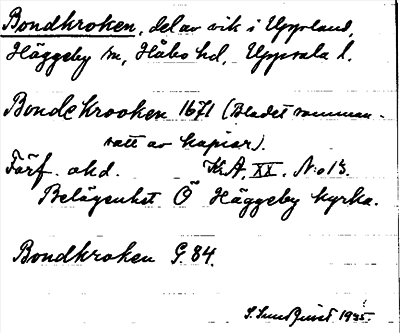 Bondkroken, del av vik i Uppland,
Häggeby sn, Håbo hd, Uppsala l.
Bondekrooken 1671 (Bladet samman-
satt av kopior).
Förf. okd. KrA. XX. N:o 13.
Belägenhet Ö Häggeby kyrka.
Bondkroken G. 84.
S. Sundquist 1935.